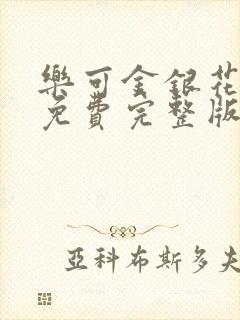 樂可金銀花
免費完整版
亞科布斯多夫